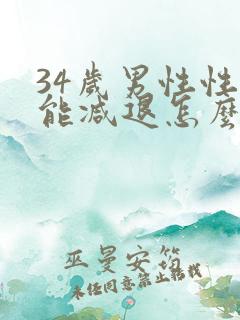 34歲男性性
能减退怎麽
巫曼安筠
未经同意禁止转载